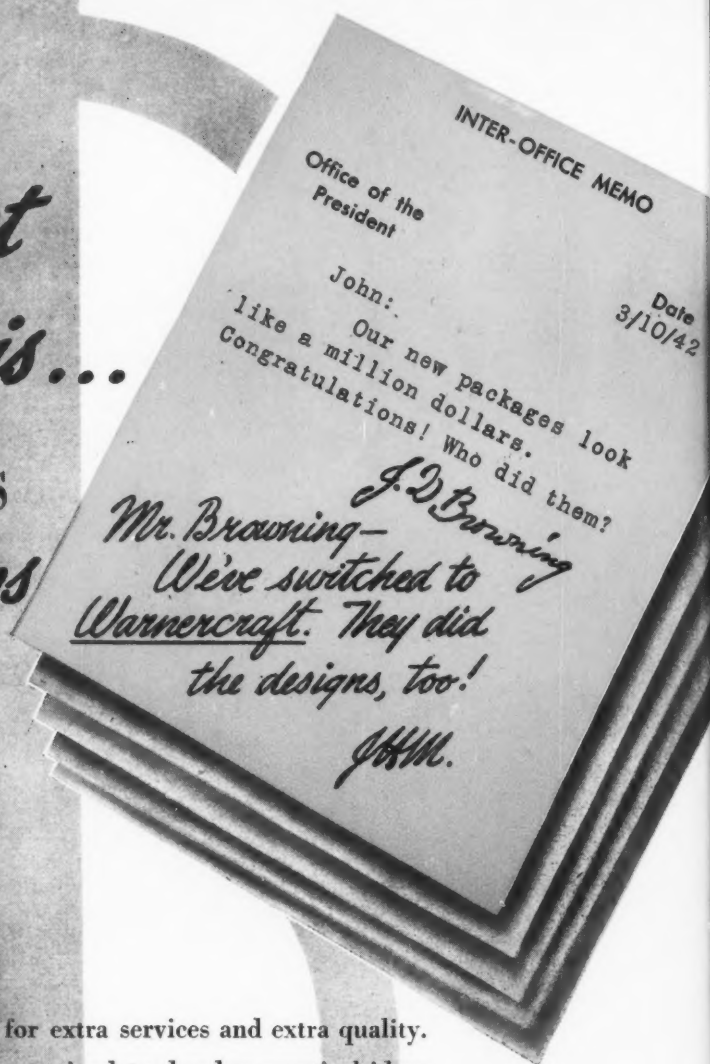 INTER-OFFICE MEMO
Office of the
President
Date
3/10/42
John:
Our new packages look
like a million dollars.
Congratulations! Who did them?
J. D Browning
Mr. Browning—
We've switched to
Warnercraft. They did
the designs, too!
JHM.
for extra services and extra quality.